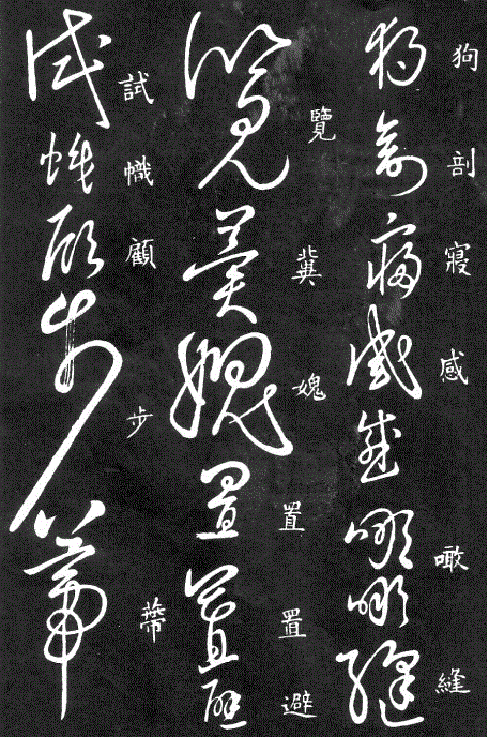 狗剖寝感噉縫
覽冀媿置置避
試幟顧步蔕